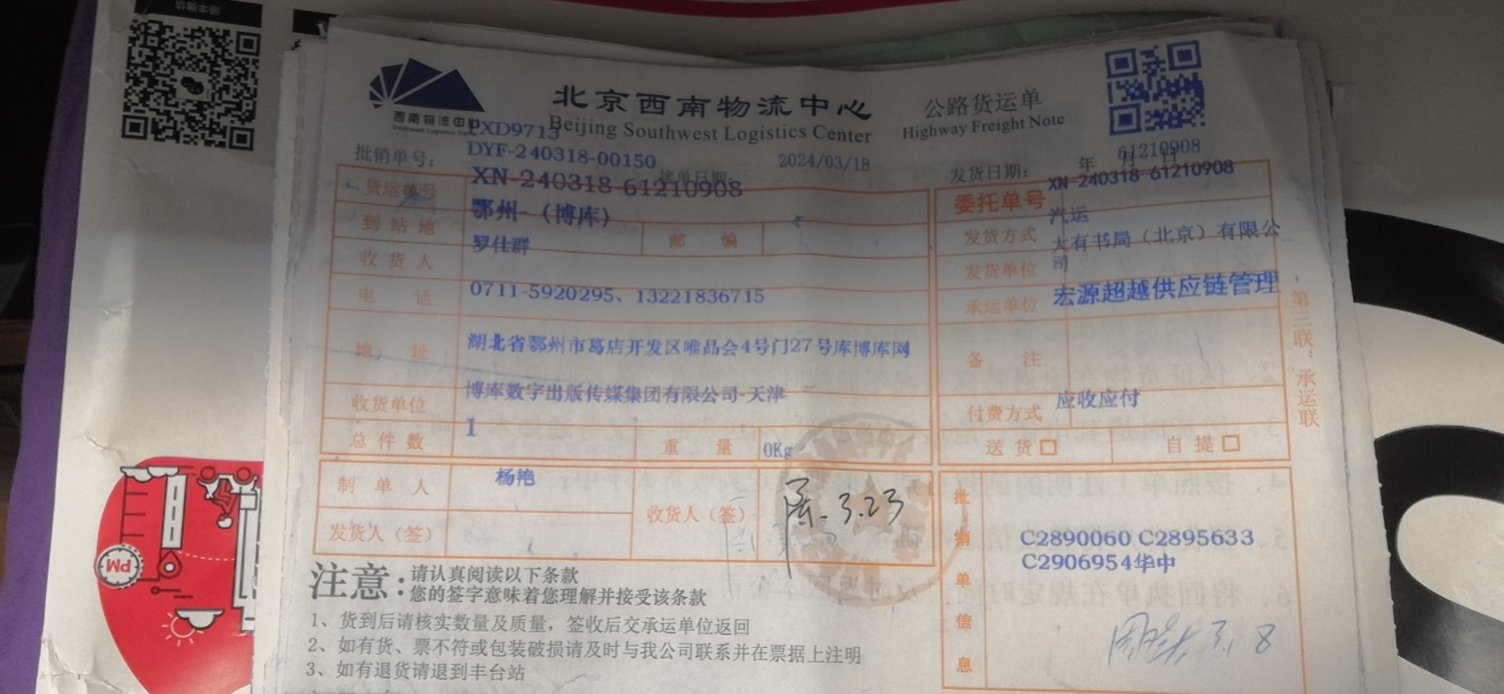 顺丰微信
北京西南物流中心
公路货运单
西南物流中心
Southwest Logistics Center
PXD9713
Beijing Southwest Logistics Center
Highway Freight Note
批销单号: DYF-240318-00150
接单日期: 2024/03/18
发货日期: 年 月 日
61210908
货运单号 XN-240318-61210908
委托单号 XN-240318-61210908
到站地 鄂州-(博库)
邮 编
发货方式 汽运
收货人 罗佳群
发货单位 大有书局(北京)有限公司
电 话 0711-5920295、13221836715
承运单位 宏源超越供应链管理
地 址 湖北省鄂州市葛店开发区唯品会4号门27号库博库网
备 注
收货单位 博库数字出版传媒集团有限公司-天津
付费方式 应收应付
总件数 1
重 量 0Kg
送货□ 自提□
第三联:承运联
制单人 杨艳
收货人(签) 3.23
发货人(签)
批销单信息
C2890060 C2895633
C2906954华中
注意: 请认真阅读以下条款
您的签字意味着您理解并接受该条款
1、货到后请核实数量及质量，签收后交承运单位返回
2、如有货、票不符或包装破损请及时与我公司联系并在票据上注明
3、如有退货请退到丰台站
PM